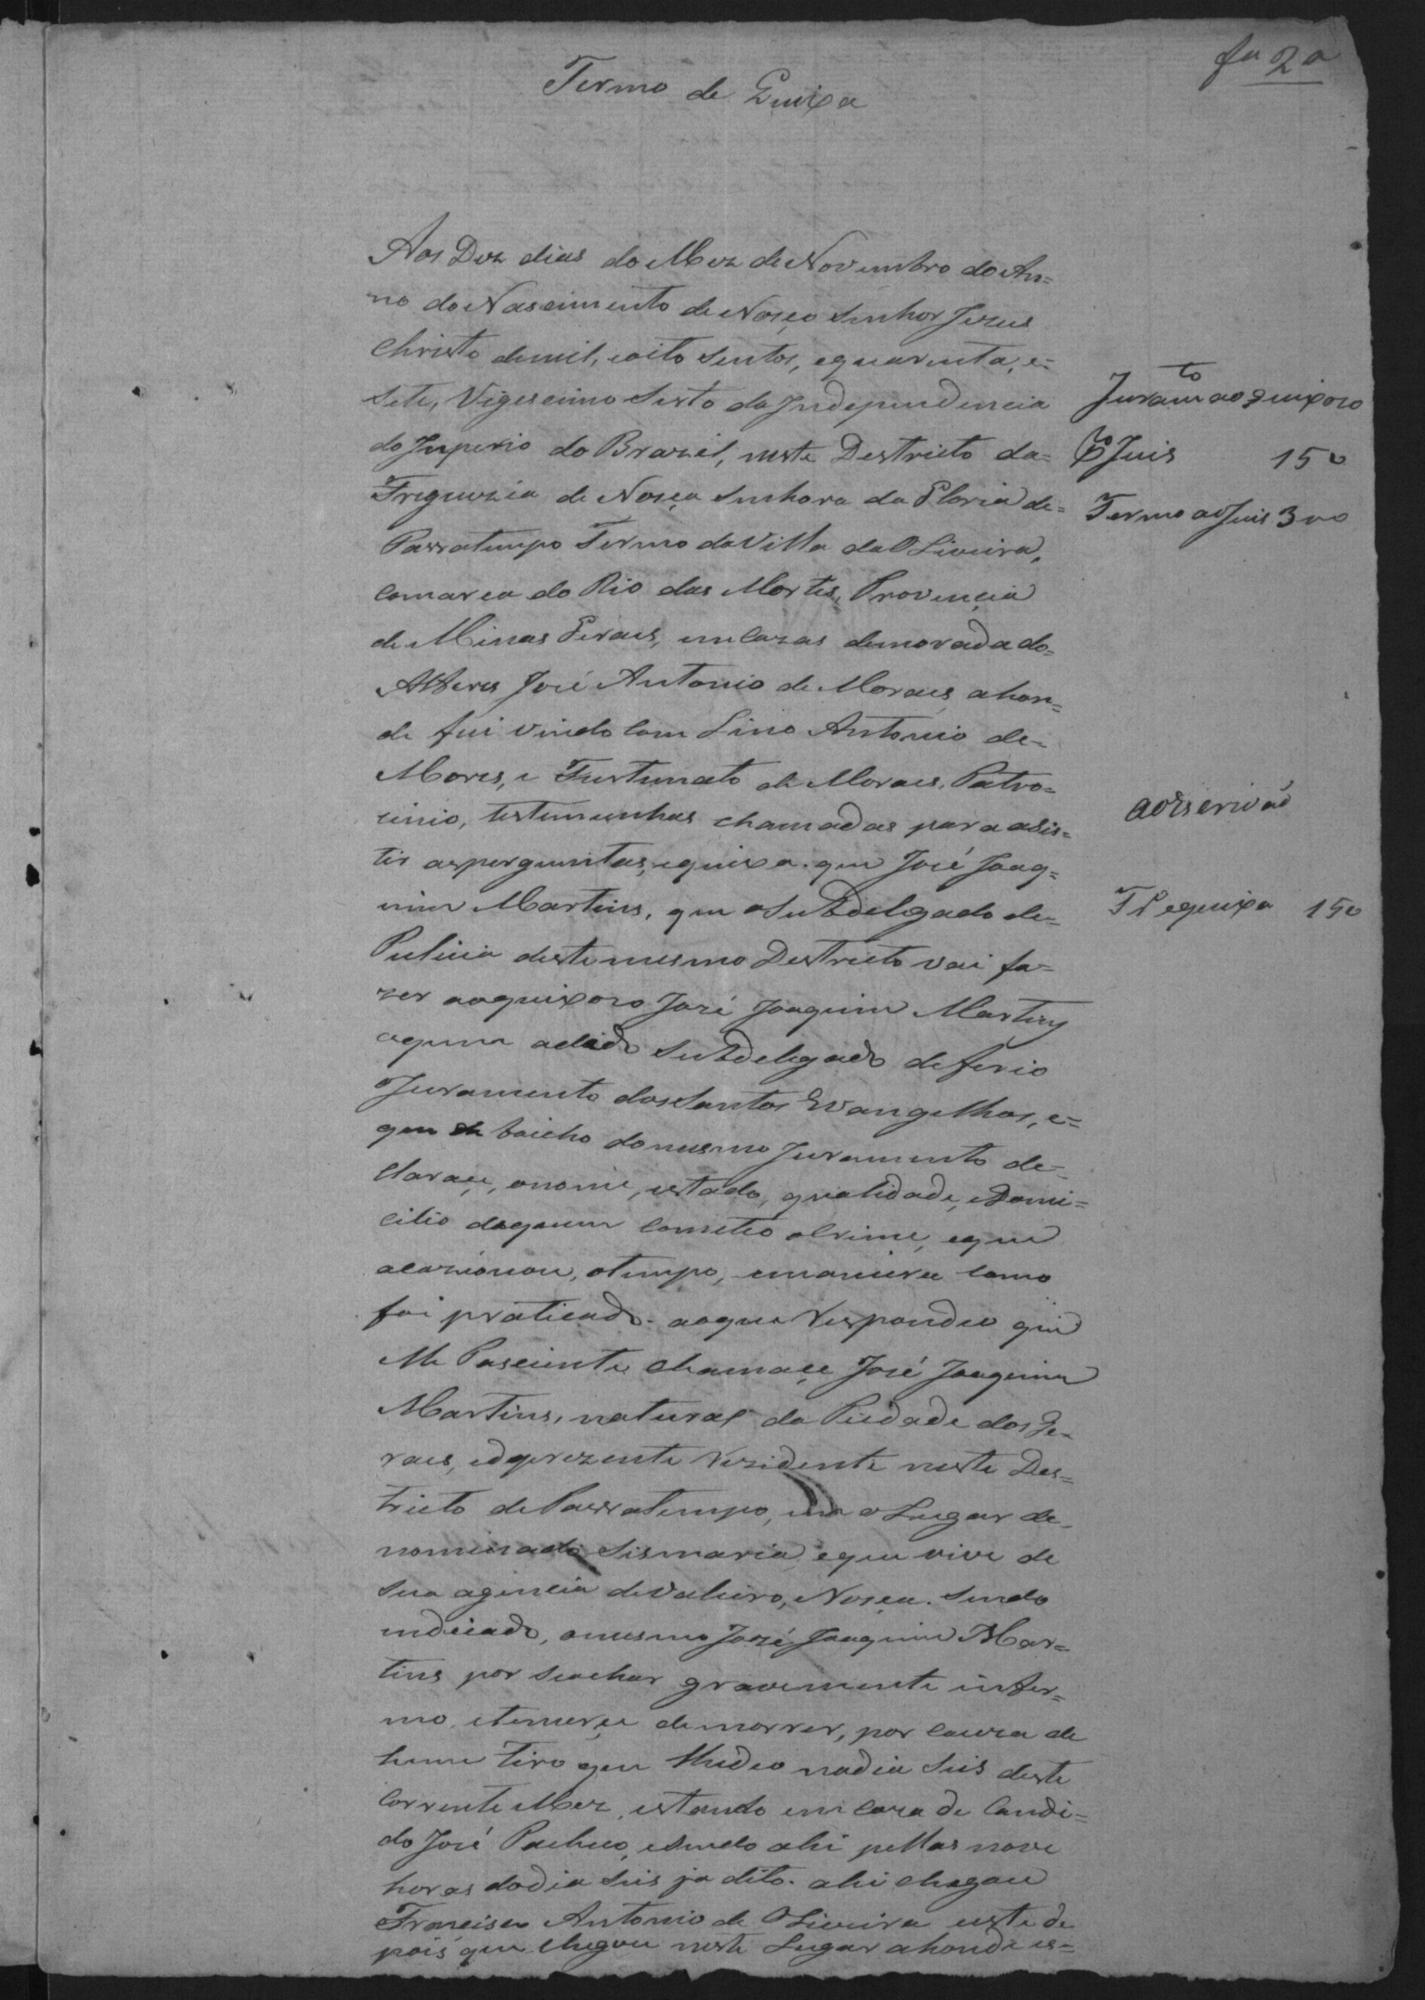 fa 2a
Termo de Quixa
Aos Dez dias do Mez de Novembro do An=
no do Nascimento de Noso Senhor Jezus
Christo demil, eoito sentos, equarenta, e=
Sete, Vigesimo Sesto da Independencia
do Imperio do Brazil, neste Destricto da=
Freguezia de Nosça Senhora da Gloria de=
Passatempo Termo da Villa da Oliveira,
Comarca do Rio das Mortes, Provinçia
de Minas Geraes, em Cazas demorada do=
Alferes José Antonio de Moraes ahon=
de fui vindo Com Lino Antonio de=
Mores, e Furtunato de Moraes, Patro=
cinio, testemunhas chamadas para asis=
tir asperguntas, equixa. que José Joaq=
uim Martins, que o Subdelgado de=
Pulicia deste mesmo Destricto vai fa=
zer aoquixozo José Joaquim Martins
aquem odido Subdelegado deferio
Juramento dos Santos Evangelhos, e=
que de baicho domesmo Juramento de=
claraçe, onome, estado, qualidade, eDomi=
cilio daquem Cometeo oCrime, eque
acazionou, otempo, emaneira Como
foi praticado. aoque Respondeo que
Elle Pasciente chamaçe José Joaquim
Martins, natural da Piedade dos Ge=
raes, edeprezente Rezidente neste Des=
tricto de Passatempo, em o Lugar de=
nominado Sismaria, eque vive de
Sua agencia de Valeiro, Sendo
indiciado, omesmo José Joaquim Mar=
tins por Seachar gravemente infer=
mo, etemerçe demorrer, por Cauza de
hum Tiro que lhedeo nodia Seis deste
Corrente Mez, estando em Caza de Candi=
do José Pacheco, esendo ahi pellas nove
horas dodia Seis ja dito. ahi chegou
Francisco Antonio de Oliveira este de
pois que chegou neste Lugar ahonde es=
Juram.to ao quixozo
Juis 150
Termo ao Juis 300
aoEscrivão
T equixa 150